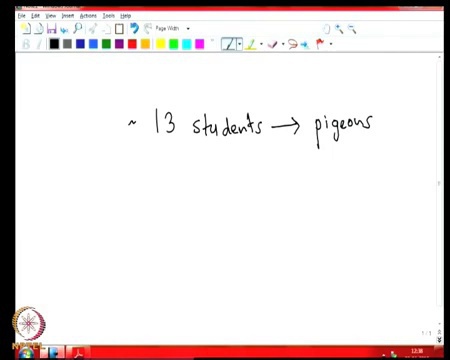 File Edit View Insert Actions Tools Help
Page Width
B I
~ 13 students → pigeons
1/1
12:38